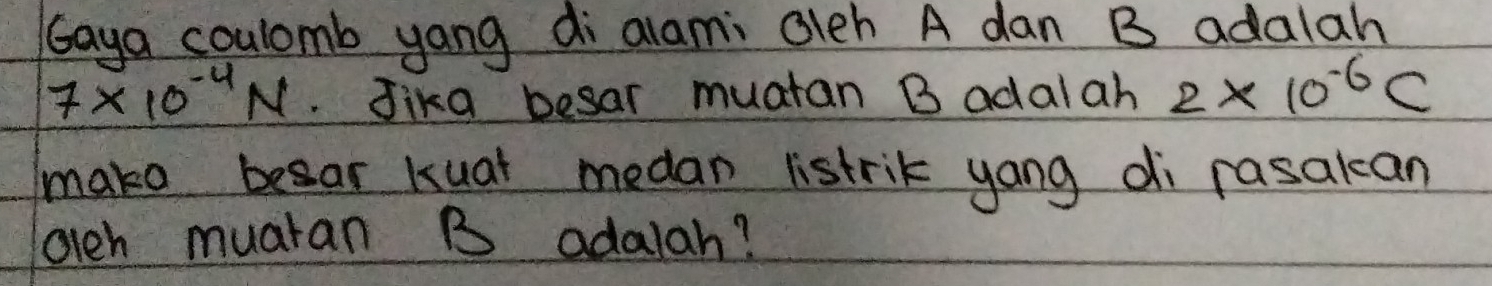 Gaya coulomb yang di alami oleh A dan B adalah
7 × 10⁻⁴ N. Jika besar muatan B adalah 2 × 10⁻⁶ C
maka besar kuat medan listrik yang di rasakan
oleh muatan B adalah?